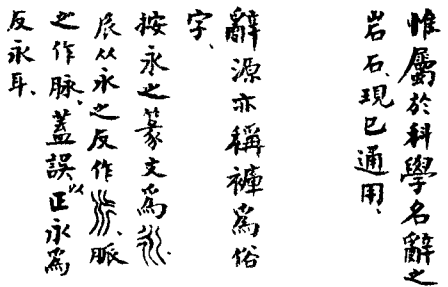 惟屬於科學名辭之
岩石、現已通用、
辭源亦稱褲爲俗
字、
按永之篆文爲
𠂢从永之反作、脈
之作脉、蓋誤以正永爲
反永耳、